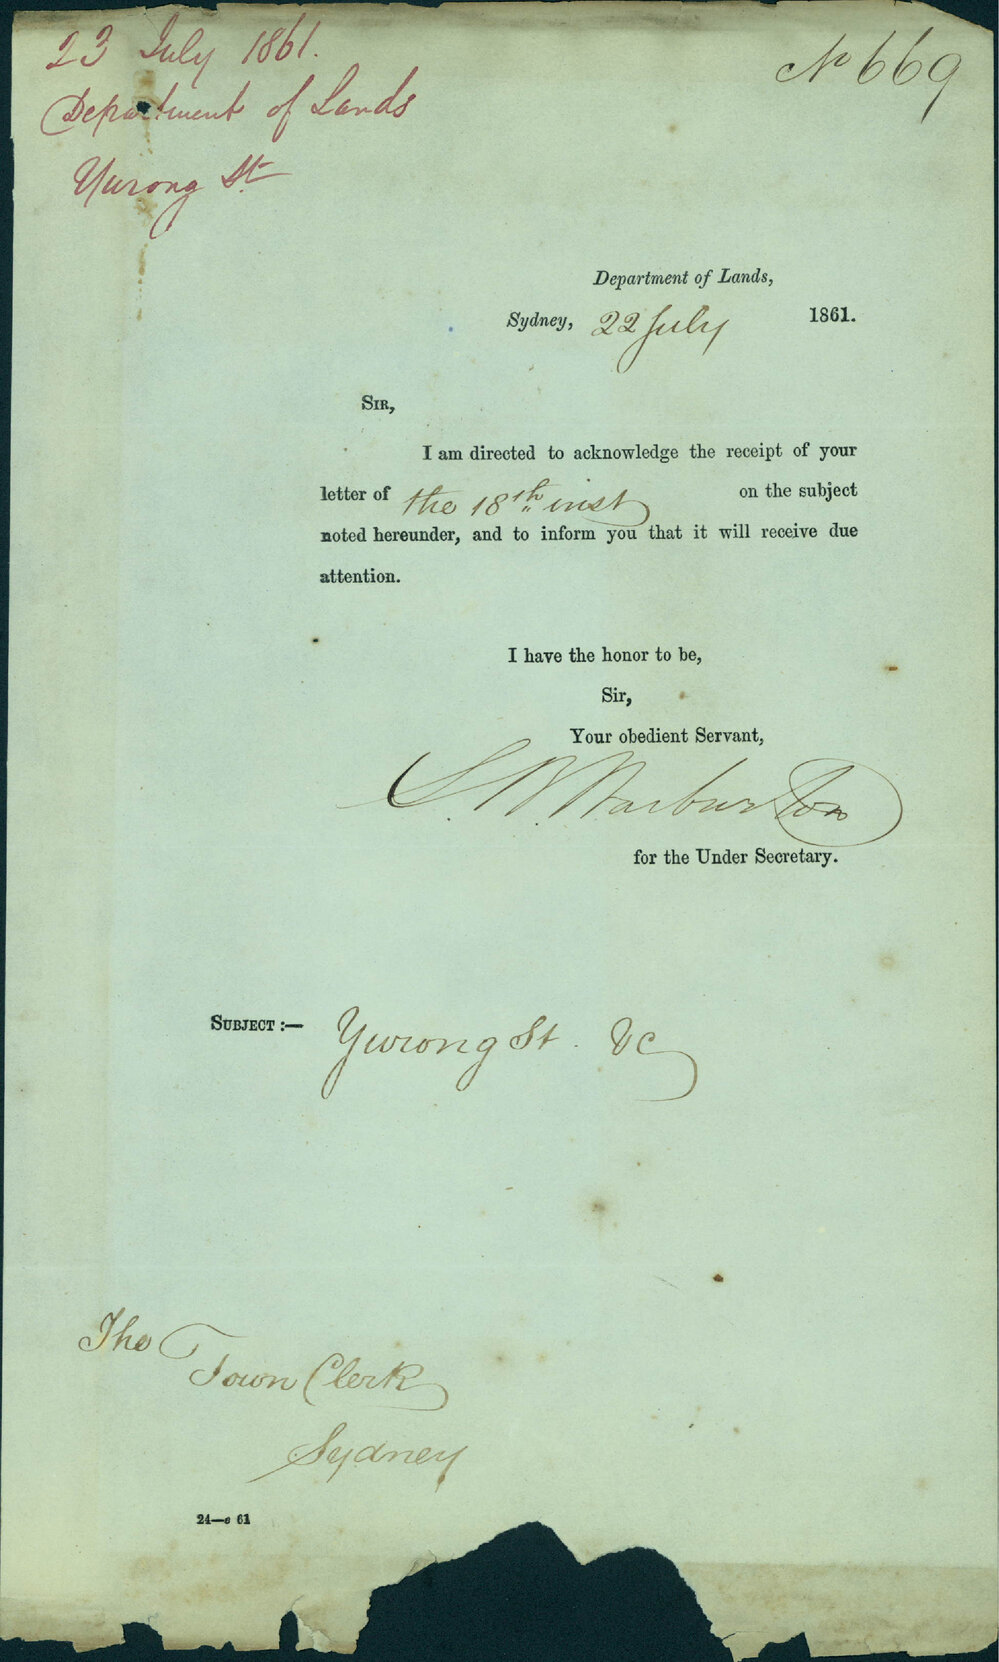 23 July 1861.
Department of Lands
Yurong St
No 669
Department of Lands,
Sydney, 22 July 1861.
SIR,
I am directed to acknowledge the receipt of your
letter of the 18th inst on the subject
noted hereunder, and to inform you that it will receive due
attention.
I have the honor to be,
Sir,
Your obedient Servant,
S. N. Warburton
for the Under Secretary.
SUBJECT :— Yurong St. &c
The
Town Clerk
Sydney
24—e 61